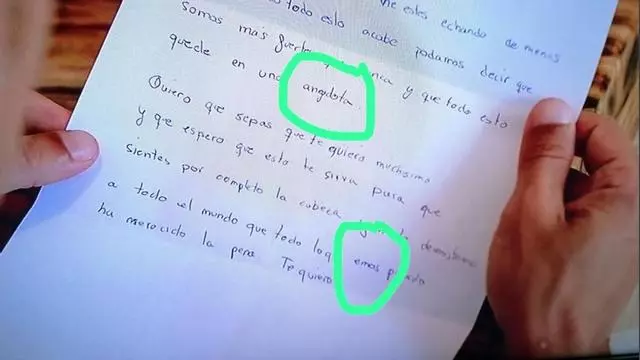 me estes echando de menos
todo esto acabe podamos decir que
somos mas fuertes nunca y que todo esto
quede en una angdota.
Quiero que sepas que te quiero muchisimo
y que espero que esto te sirva para que
sientes por completo la cabeza
a todo el mundo que todo lo emos pasado
ha merecido la pena. Te quiero